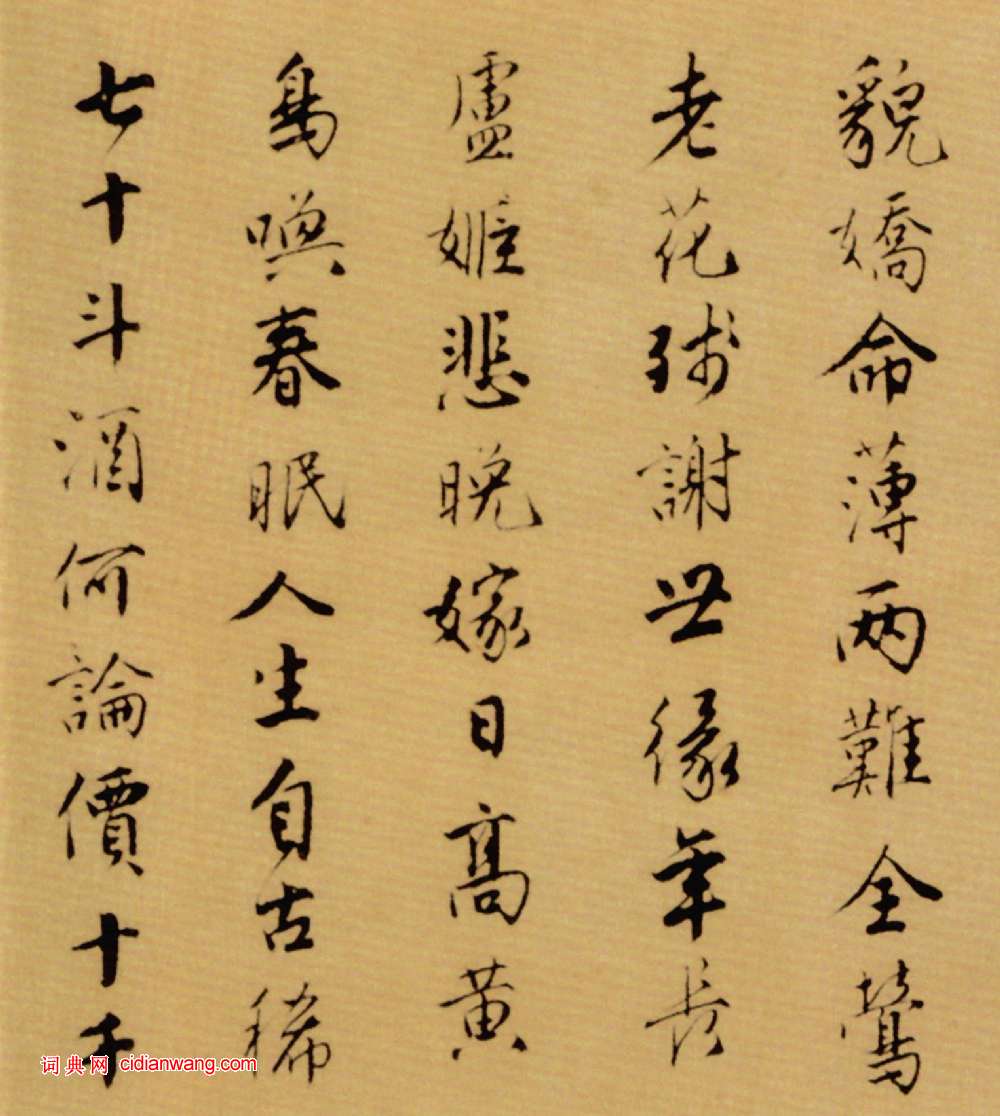 貌嬌命薄兩難全鶯
老花殘謝世緣年長
盧姬悲晚嫁日高黃
鳥喚春眠人生自古稀
七十斗酒何論價十千
词典网 cidianwang.com